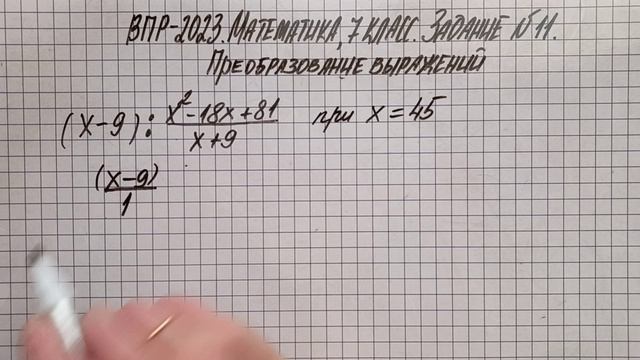 ВПР-2023. МАТЕМАТИКА, 7 КЛАСС. ЗАДАНИЕ №11.
ПРЕОБРАЗОВАНИЕ ВЫРАЖЕНИЙ
(x-9) : \frac{x^2-18x+81}{x+9} при x=45
\frac{(x-9)}{1}